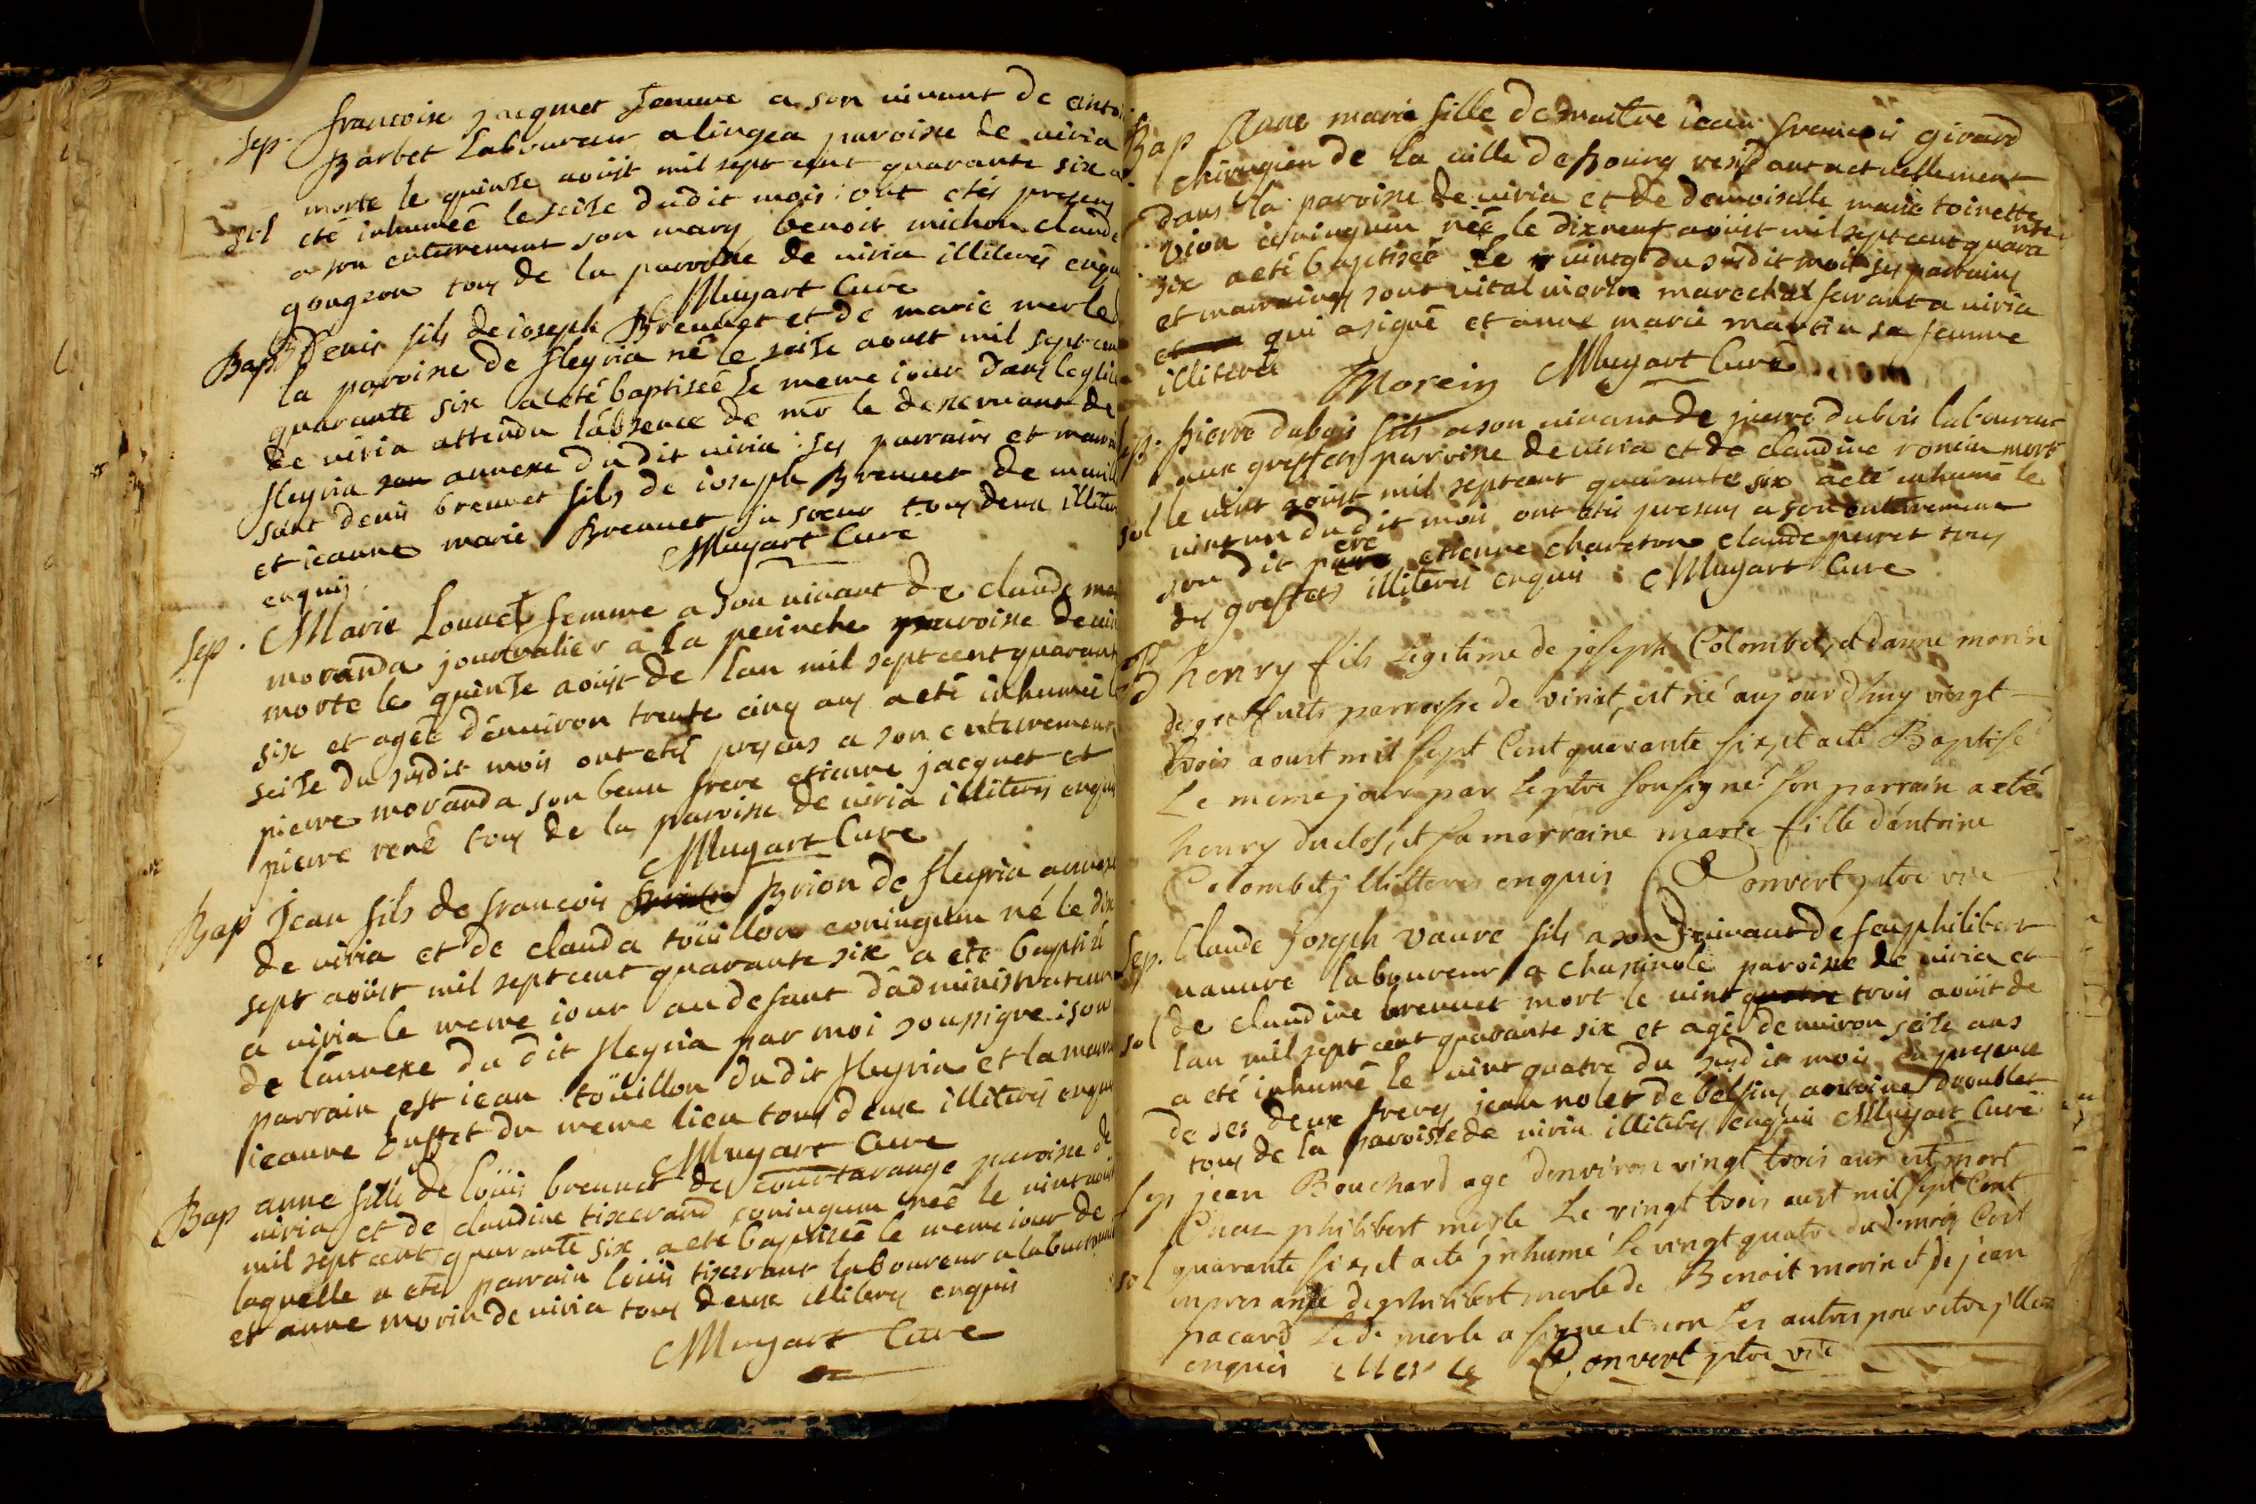 Sep. francoise jacquet femme a son vivant de anto
Barbet Laboureur a lingea paroisse de viria
morte le quinse aoüst mil sept cent quarante six a
sol eté inhumeé le seise dudit mois: ont etés presens
a son enterrement son mary benoit michon claude
gougeon tous de la paroisse de viria illiterés enquis
Muyart Curé
Bap Denis fils de ioseph Brevnet et de marie merle
la paroisse de fleyria né le seise aoust mil sept cen
quarante six a eté baptiseé le meme iour dans leglise
de viria attendu labsence de mr le desservant de
fleyria son annexe du dit viria: ses parrains et marai
sont denis brevnet fils de ioseph Brevnet de
et ieanne marie Brevnet sa soeur tous deux illiter
enquis Muyart Cure
Sep. Marie Louvet femme a son vivant de claude
moranda journalier a la perinche paroisse de viri
morte le quinse aoüst de lan mil sept cent quarant
six et ageé denviron trente cinq ans a eté inhumeé l
seise du susdit mois ont etés presens a son enterrement
pierre moranda son beau frere etienne jacquet et
pierre rené tous de la paroisse de viria illiteres enquis
Muyart Cure
Bap Jean fils de francois Brion de fleyria annexe
de viria et de clauda toüillon coniugum né le dix
sept aoüst mil sept cent quarante six a ete baptisé
a viria le meme iour au defaut dadministrateur
de lannexe du dit fleyria par moi soussigné: son
parrain est iean toüillon dudit fleyria et la marai
ieanne buffet du meme lieu tous deux illiterés enquis
Muyart Cure
Bap anne fille de loüis brevnet de courtarange paroisse de
viria et de claudine tisserand coniugum neé le vint aoüst
mil sept cent quarante six a ete baptiseé le meme iour de
laquelle a eté parrain loüis tisserant laboureur a
et anne morin de viria tous deux illiteres enquis
Muyart Cure
Bap Anne marie fille de maitre iean francois girard
chirugien de la ville de Bourg residant actuellement
dans la paroisse de viria et de demoiselle marie toinette
vion coniugum neé le dixneuf aoüst mil sept cent quarante
six a eté baptiseé le vintg du susdit mois ses parrains
et marraines sont vital morin marechal ferant a viria
et qui a signé et anne marie martin sa femme
illiteré Morein Muyart Curé
Sep. pierre dubois fils a son vivant de pierre dubois laboureur
aux greffets paroisse de viria et de claudine roncin mort
le vint aoüst mil sept cent quarante six a eté inhumé le
sol vint un dudit mois ont etés presens a son enterrement
son dit pere etienne chareton claude perret tous
des greffets illiterés enquis Muyart Cure
Bap henry fils legitime de joseph Colombet, et d'anne morin
de greffuets parroisse de viriat, est né aujourd'huy vingt
trois aoust mil sept Cent quarante six, et a eté Baptisé
Le meme jour par le ptre soussigné son parrain a eté
henry duclos, et sa marraine marie fille d'antoine
Colombet illitteres enquis Convert ptre vre
Sep. Claude Joseph vauvre fils a son vivant de feu philibert
vauvre laboureur a chapinole paroisse de viria et
de claudine brevnet mort le vint quatre trois aoüst de
sol lan mil sept cent quarante six et agé denviron seise ans
a eté inhumé le vint quatre du susdit mois en presence
de ses deux freres jean nolet de antoine droublet
tous de la paroisse de viria illiteres enquis Muyart Curé
Sep jean Bouchard agé denviron vingt trois ans est mort
Chez philibert merle Le vingt trois aout mil sept Cent
quarante six, et a eté inhumé Le vingt quatre dud. mois Cort
sol en presance de philibert merle de Benoit morin et de jean
pacard Led. merle a signé et non Les autres pour etre illeteres
enquis Merle Convert ptre vre